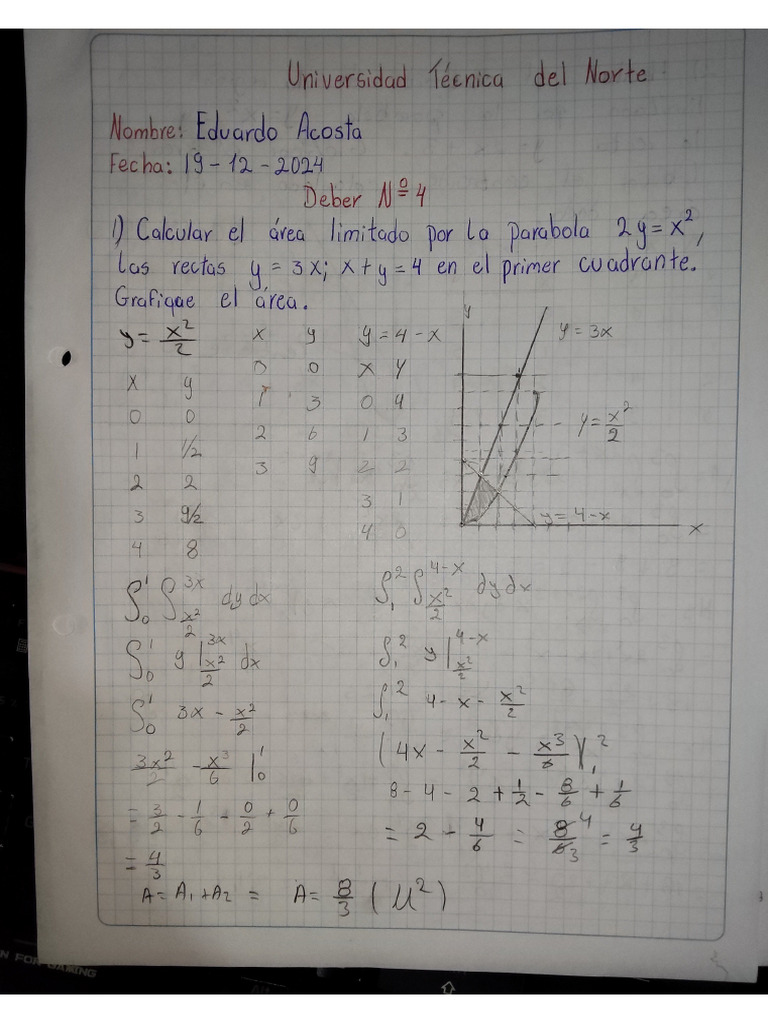 Universidad Técnica del Norte
Nombre: Eduardo Acosta
Fecha: 19-12-2024
Deber Nº 4
1) Calcular el área limitado por la parabola 2y = x²,
las rectas y = 3x; x+y = 4 en el primer cuadrante.
Grafique el área.
y = x²/2
x y
0 0
1 1/2
2 2
3 9/2
4 8
x y
0 0
1 3
2 6
3 9
y = 4-x
x y
0 4
1 3
2 2
3 1
4 0
y
y = 3x
y = x²/2
y = 4-x
x
∫₀¹ ∫_{x²/2}^{3x} dy dx
∫₀¹ y |_{x²/2}^{3x} dx
∫₀¹ 3x - x²/2
3x²/2 - x³/6 |₀¹
= 3/2 - 1/6 - 0/2 + 0/6
= 4/3
∫₁² ∫_{x²/2}^{4-x} dy dx
∫₁² y |_{x²/2}^{4-x}
∫₁² 4-x - x²/2
(4x - x²/2 - x³/6)|₁²
8-4-2+1/2-8/6+1/6
= 2 - 4/6 = 8/6 4/3 = 4/3
A = A₁+A₂ = A = 8/3 (u²)
N FOR GAMING